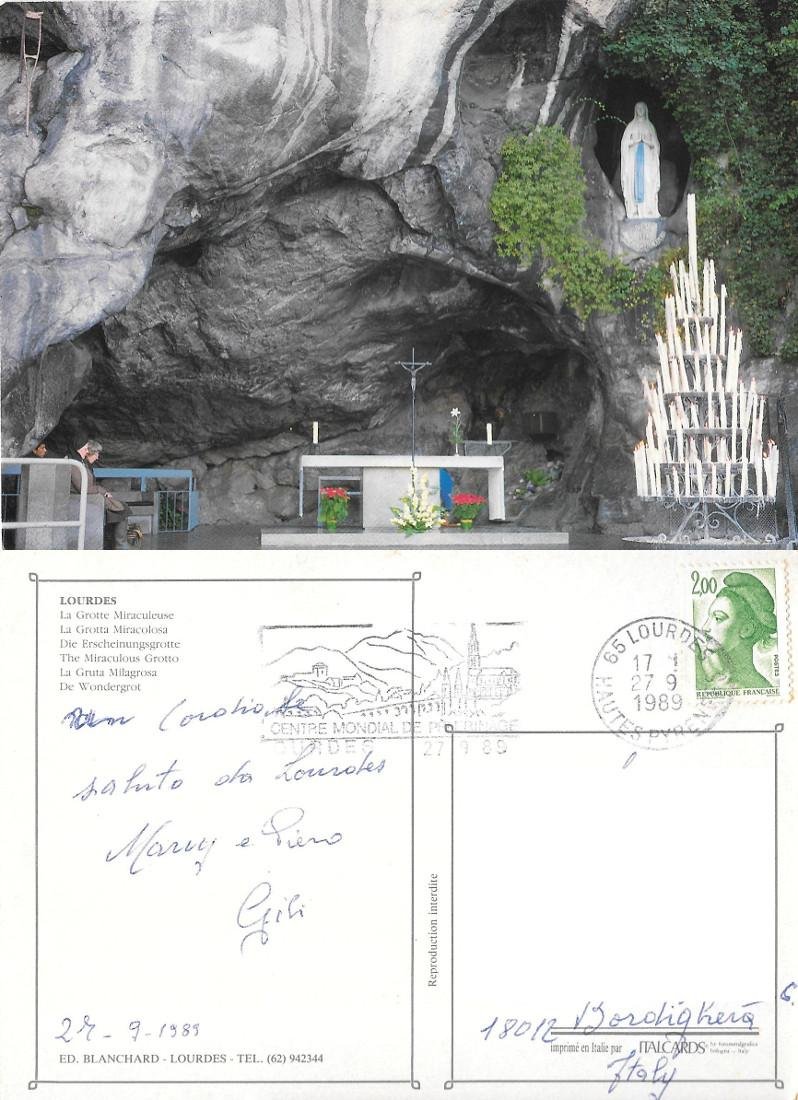 LOURDES
La Grotte Miraculeuse
La Grotta Miracolosa
Die Erscheinungsgrotte
The Miraculous Grotto
La Gruta Milagrosa
De Wondergrot
Cordiale
saluto da Lourdes
Mary e Piero
Gili
27-9-1989
ED. BLANCHARD - LOURDES - TEL. (62) 942344
CENTRE MONDIAL DE PELERINAGE
LOURDES 27 9 89
65 LOURDES
17
27 9
1989
HAUTES PYRENEES
2,00
POSTES
REPUBLIQUE FRANÇAISE
Reproduction interdite
18012 Bordighera
imprimé en Italie par ITALCARDS
Bologna - Italy
Italy